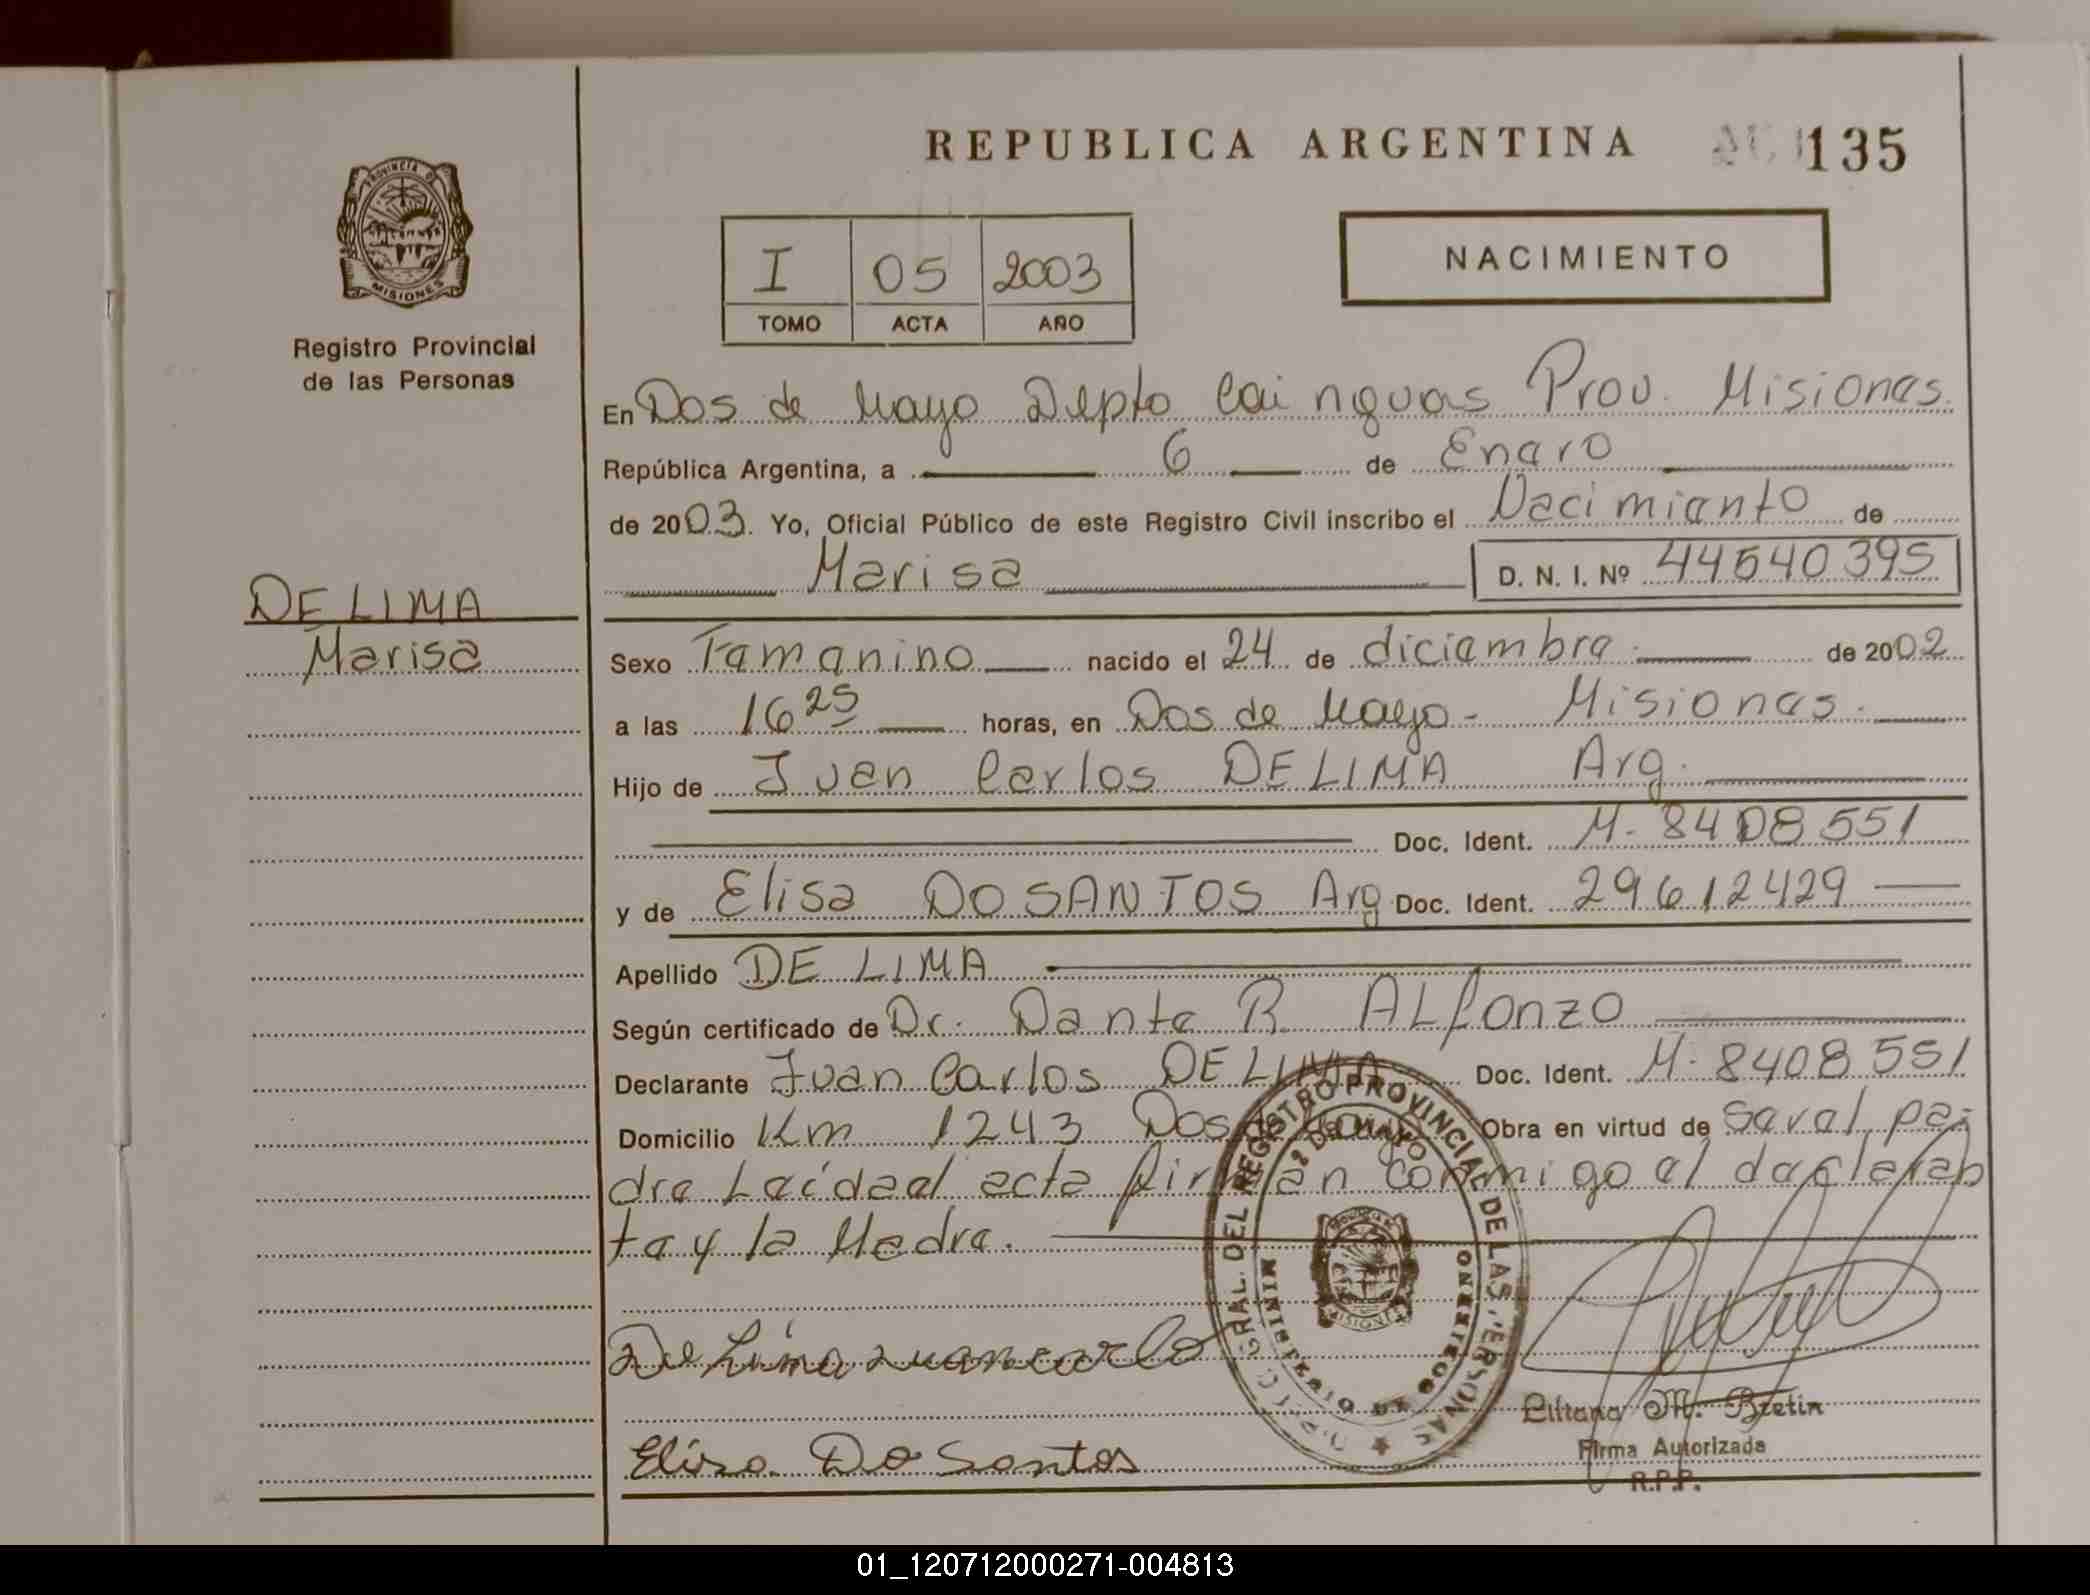 REPUBLICA ARGENTINA
135
PROVINCIA DE
MISIONES
Registro Provincial
de las Personas
I 05 2003
TOMO ACTA AÑO
NACIMIENTO
En Dos de Mayo Depto Cainguas Prov. Misiones.
República Argentina, a 6 de Enero
de 2003. Yo, Oficial Público de este Registro Civil inscribo el Nacimiento de
Marisa D. N. I. Nº 44540395
DE LIMA
Marisa
Sexo Femenino nacido el 24 de diciembre de 2002
a las 16 25 horas, en Dos de Mayo - Misiones.
Hijo de Juan Carlos DE LIMA Arg.
Doc. Ident. M- 8408551
y de Elisa DO SANTOS Arg Doc. Ident. 29612429
Apellido DE LIMA
Según certificado de Dr. Dante R. ALfonzo
Declarante Juan Carlos DE LIMA Doc. Ident. M- 8408551
Domicilio Km 1243 Dos de Mayo Obra en virtud de ser el pa-
dre Leída el acta firman conmigo el declaran
te y la Madre.
De Lima Juan carlo
Elisa Do Santos
GRAL. DEL REGISTRO PROVINCIAL DE LAS PERSONAS
2 DE MAYO
MINISTERIO DE GOBIERNO
Liliana M. Bretin
Firma Autorizada
R.P.P.
01_120712000271-004813